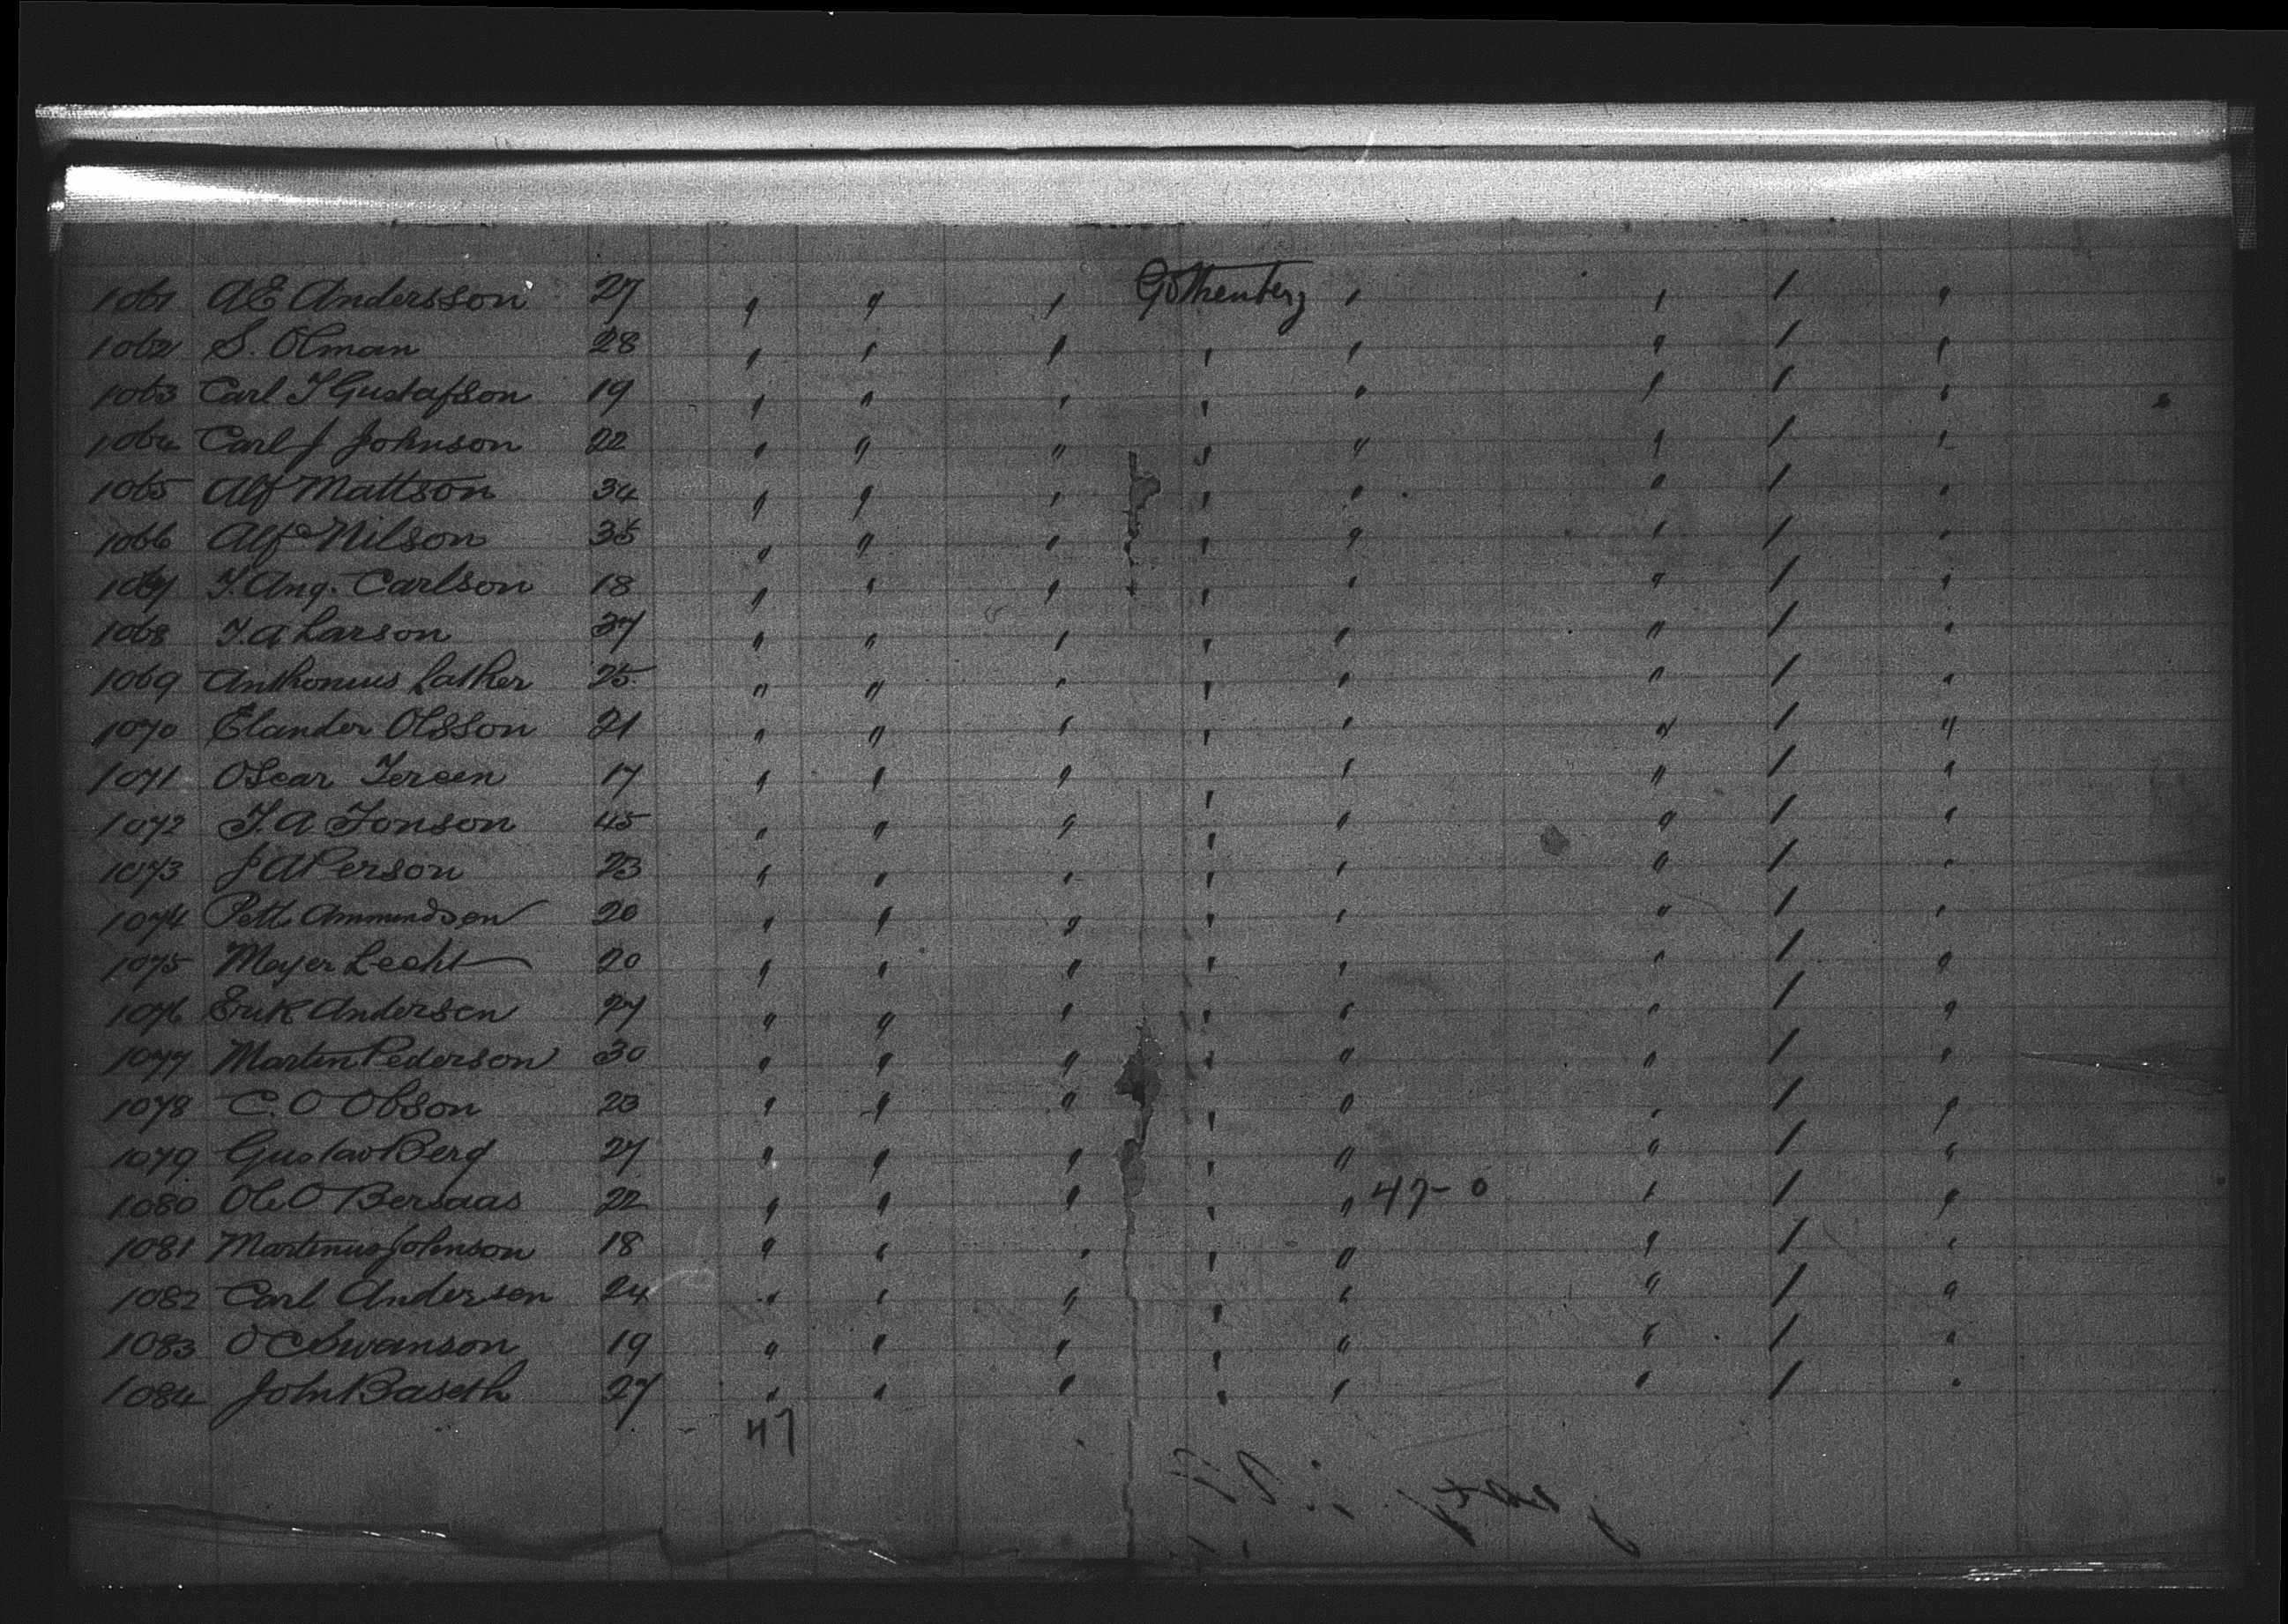 1061 A E Andersson 27 " " " Gothenberg " " / "
1062 S. Olman 28 " " " " " " / "
1063 Carl I Gustafson 19 " " " " " " / "
1064 Carl J Johnson 22 " " " " " " / "
1065 Alf Mattson 34 " " " " " " / "
1066 Alf Nilson 35 " " " " " " / "
1067 I. Aug. Carlson 18 " " " " " " / "
1068 I. A Larson 37 " " " " " " / "
1069 Anthonius Lather 25 " " " " " " / "
1070 Elander Olsson 21 " " " " " " / "
1071 Oscar 17 " " " " " " / "
1072 I. A Jonson 45 " " " " " " / "
1073 J A Person 23 " " " " " " / "
1074 Pett Ammundsen 20 " " " " " " / "
1075 Meyer Lecht 20 " " " " " " / "
1076 Erik Andersen 27 " " " " " " / "
1077 Martin Pederson 30 " " " " " " / "
1078 C. O Olson 23 " " " " " " / "
1079 Gustav Berg 27 " " " " " " / "
1080 Ole O Bersaas 22 " " " " " 47-0 " / "
1081 Martinus Johnson 18 " " " " " " / "
1082 Carl Andersen 24 " " " " " " / "
1083 O C Swanson 19 " " " " " " / "
1084 John Baseth 27 " " " " " " / "
47